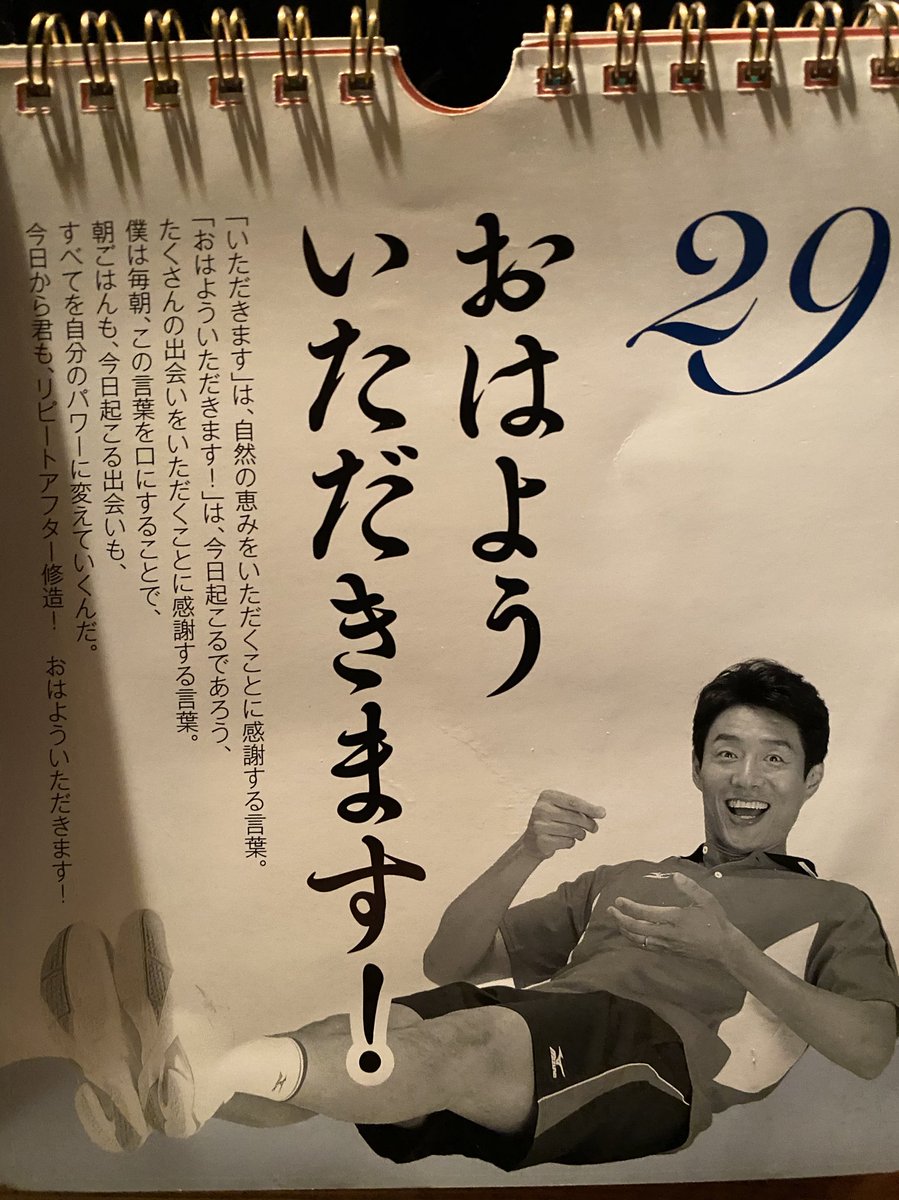 29
おはよう
いただきます!
「いただきます」は、自然の恵みをいただくことに感謝する言葉。
「おはよういただきます!」は、今日起こるであろう、
たくさんの出会いをいただくことに感謝する言葉。
僕は毎朝、この言葉を口にすることで、
朝ごはんも、今日起こる出会いも、
すべてを自分のパワーに変えていくんだ。
今日から君も、リピートアフター修造! おはよういただきます!